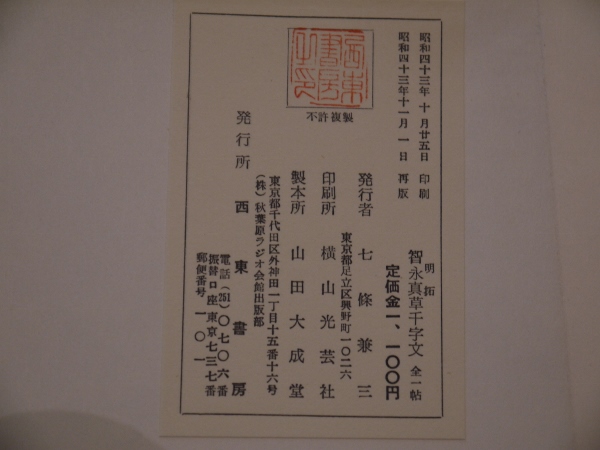 昭和四十三年 十月廿五日 印刷
昭和四十三年十一月 一日 再版
明拓
智永真草千字文 全一帖
定価金一、一〇〇円
西東書房之印
不許複製
発行者 七條兼三
東京都足立区興野町一〇二六
印刷所 横山光芸社
製本所 山田大成堂
東京都千代田区外神田一丁目十五番十六号
(株)秋葉原ラジオ会館出版部
発行所 西東書房
電話(251)〇七〇六番
振替口座東京七三七番
郵便番号 一〇一